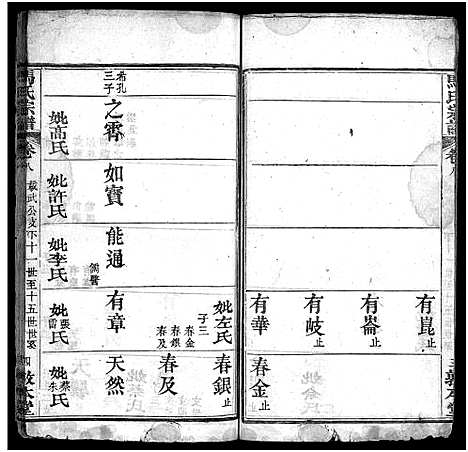 馬氏宗譜
卷八
三 敦本堂
有崑 止
有崙 止
有岐 止
有華
春金 止
妣左氏
子三
春金
春銀
春及
春銀 止
春及
希孔
三子
之霽
妣高氏
如寶
妣許氏
能通
妣李氏
有章
妣張氏
雷
天然
妣蔡氏
朱
馬氏宗譜
卷八
載武公支下十一世至十五世世系
四 敦本堂